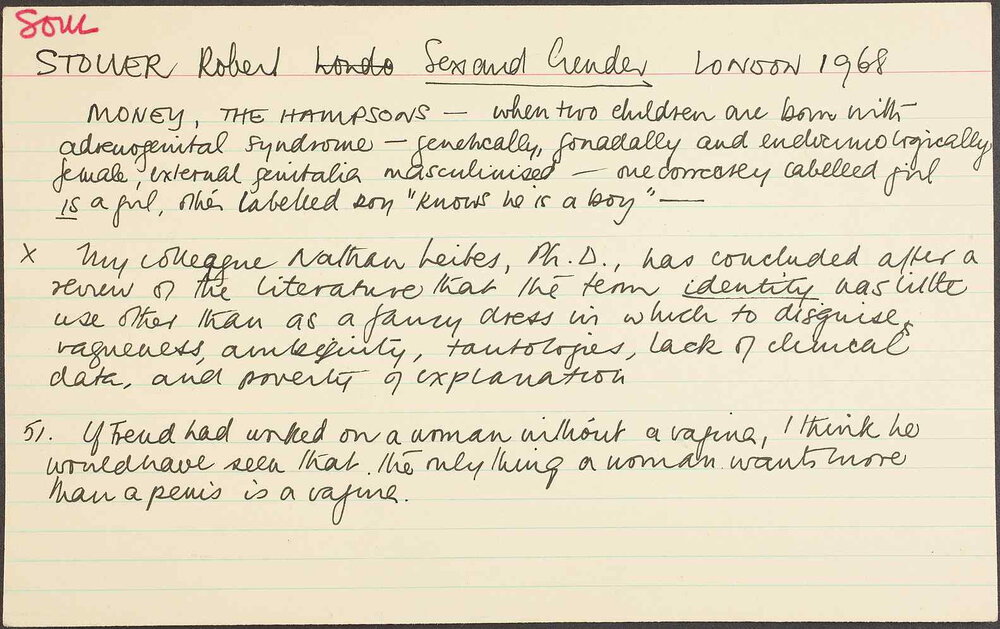 Soul
STOLLER Robert Londo Sex and Gender LONDON 1968
MONEY, THE HAMPSONS — when two children are born with
adrenogenital syndrome — genetically, gonadally and endocrinologically
female, external genitalia masculinised — one correctly labelled girl
is a girl, other labelled boy "knows he is a boy" —
X My colleague Nathan Leites, Ph.D., has concluded after a
review of the literature that the term identity has little
use other than as a fancy dress in which to disguise
vagueness, ambiguity, tautologies, lack of clinical
data, and poverty of explanation
51. If Freud had worked on a woman without a vagina, I think he
would have seen that the only thing a woman wants more
than a penis is a vagina.